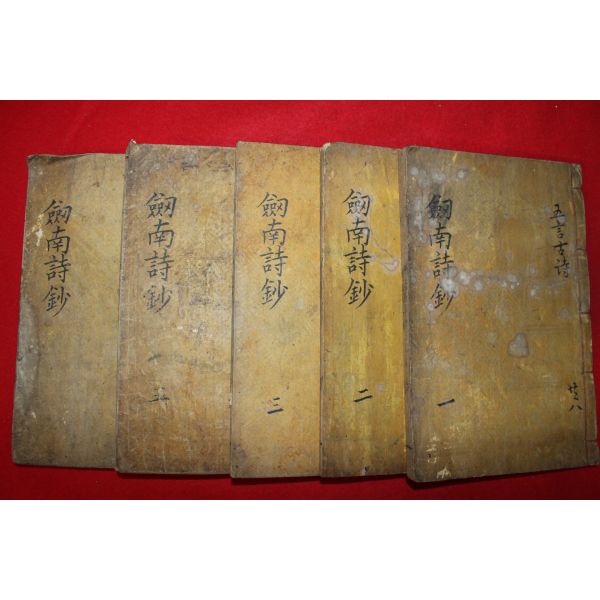 五言古詩
共八
劒南詩鈔
一
劒南詩鈔
二
劒南詩鈔
三
劒南詩鈔
五
劒南詩鈔